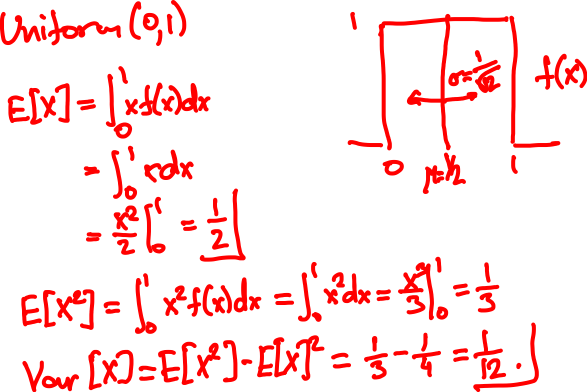 Uniform (0,1)
E[X] = ∫₀¹ xf(x)dx
= ∫₀¹ xdx
= x²/2 |₀¹ = 1/2
1
σ=1/√12
f(x)
0 μ=1/2 1
E[X²] = ∫₀¹ x²f(x)dx = ∫₀¹ x²dx = x³/3 |₀¹ = 1/3
Var [X] = E[X²] - E[X]² = 1/3 - 1/4 = 1/12.